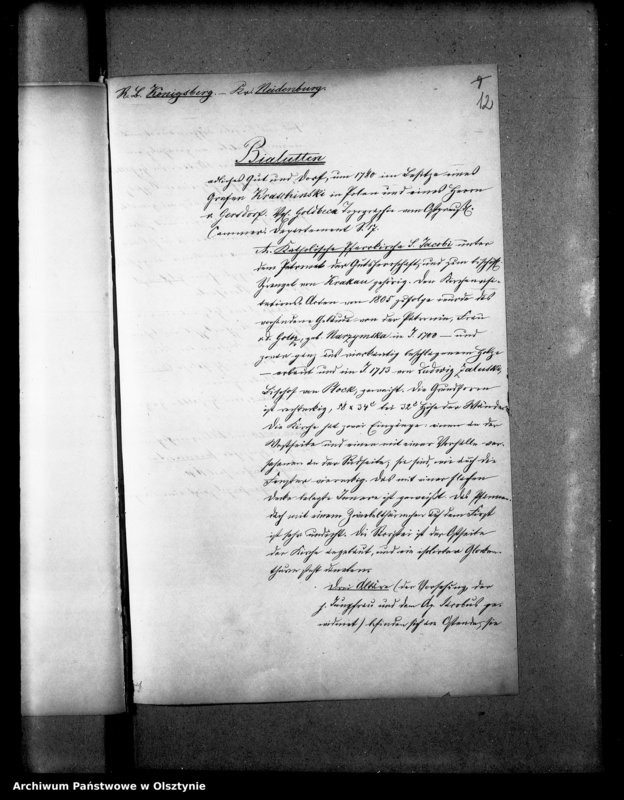 R. B. Königsberg. – Kr. Neidenburg.
12
Bialutten
adliches Gut und Dorf, um 1780 im Besitze eines
Grafen Krasinski in Polen und eines Herrn
v. Gersdorf. Vgl. Goldbeck Topographie vom Ostpreuß.
Cammer-Departement S. 7.
A. Katholische Pfarrkirche S. Jacobi unter
dem Patronat der Gutsherrschaft, und zum
Sprengel von Krakau gehörig. Den
Acten von 1805 zufolge wurde das
vorhandene Gebäude von der Patronin, Frau
v. d. Goltz, geb. Narzymska in J. 1700 – und
zwar ganz aus vierkantig beschlagenem Holze
– erbaut und im J. 1713 von Ludwig Zaluski
Bischof von Plock, geweiht. Die Grundform
ist rechteckig, 37' bei 32' Höhe der Wände.
Die Kirche hat zwei Eingänge: einen an der
Westseite und einen mit einer Vorhalle ver-
sehenen an der Südseite; sie sind, wie auch die
Fenster viereckig. Das mit einer flachen
Decke belegte Innere ist geweißt. Das Pfannen-
dach mit einem Zwiebelthürmchen auf dem First
ist sehr undicht. Die Sacristei ist der Ostseite
der Kirche angebaut, und ein isolirter Glocken-
thurm steht daneben.
Drei Altäre (der Verehrung der
h. Jungfrau und dem Ap. Jacobus ge-
widmet) befinden sich am Ostende, sie
Archiwum Państwowe w Olsztynie